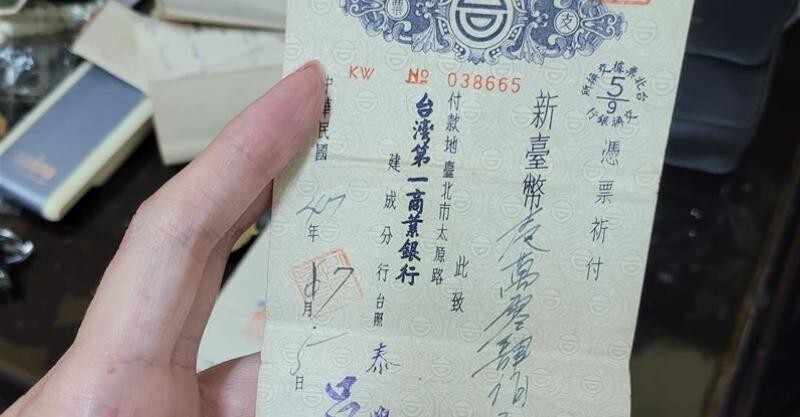 票
支
KW № 038665
台北票據交換所
5/9
憑票祈付
新臺幣 萬零肆佰
此致
付款地臺北市太原路
台灣第一商業銀行
建成分行 台照
中華民國 47 年 7 月 5 日
泰